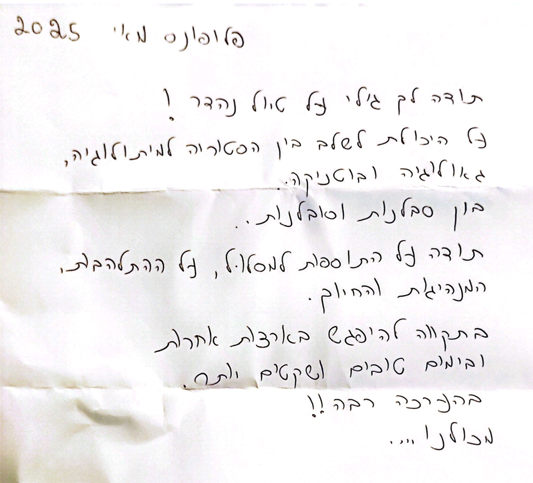 פלופונס מאי 2025
תודה לך גילי על טיול נהדר!
על היכולת לשלב בין הסטוריה למיתולוגיה,
גאולוגיה ובוטניקה.
בין סבלנות וסובלנות..
תודה על התוספות למסלול, על ההתלהבות,
המנהיגות והחיוך.
בתקווה להיפגש בארצות אחרות
ובימים טובים ושקטים יותר.
בהערכה רבה!!
מכולנו....